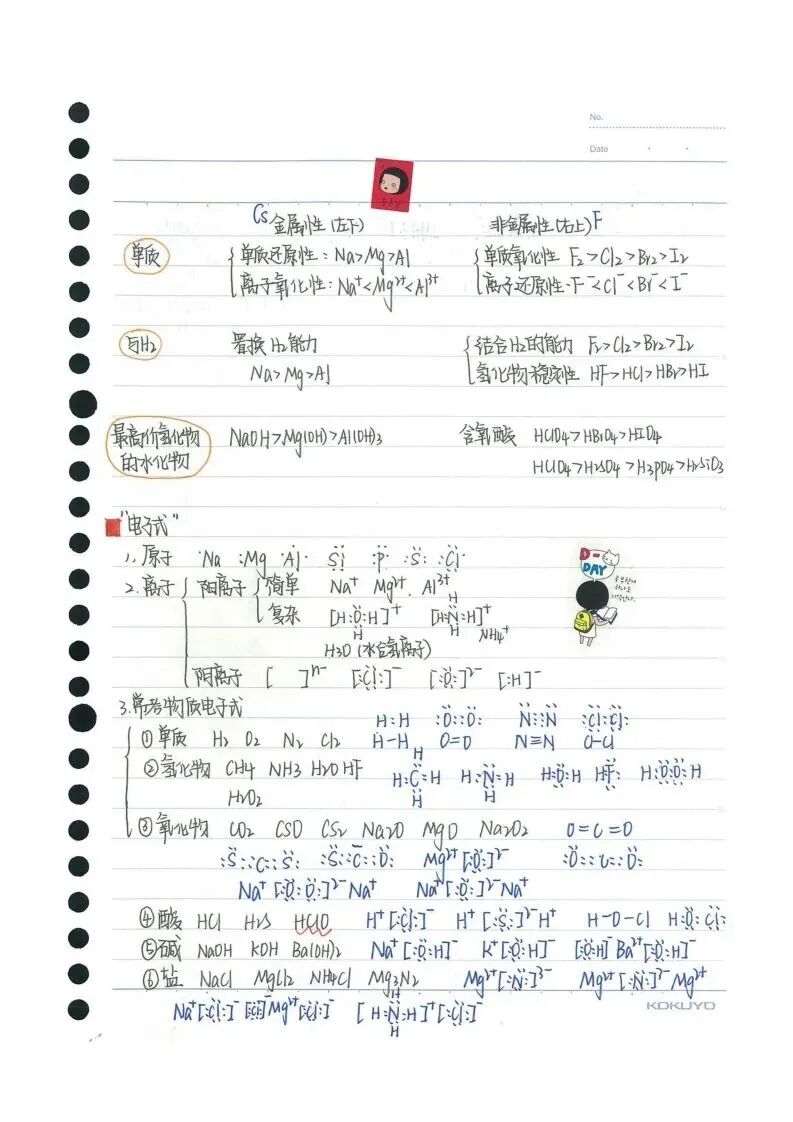 No.
Date
Cs 金属性(左下) 非金属性(右上) F
单质 单质还原性: Na>Mg>Al 单质氧化性 F₂>Cl₂>Br₂>I₂
离子氧化性: Na⁺<Mg²⁺<Al³⁺ 离子还原性·F⁻<Cl⁻<Br⁻<I⁻
与H₂ 置换H₂能力 结合H₂的能力 F₂>Cl₂>Br₂>I₂
Na>Mg>Al 氢化物稳定性 HF>HCl>HBr>HI
最高价氧化物的水化物 NaOH>Mg(OH)>Al(OH)₃ 含氧酸 HClO₄>HBrO₄>HIO₄
HClO₄>H₂SO₄>H₃PO₄>H₂SiO₃
"电子式"
1. 原子 ·Na :Mg Al Si P S Cl
D-DAY
2. 离子 阳离子 简单 Na⁺ Mg²⁺. Al³⁺
复杂 [H:O:H]⁺ [H:N:H]⁺ NH₄⁺
H H H
H₃O (水合氢离子)
阳离子 [ ]ⁿ⁻ [:Cl:]⁻ [:O:]²⁻ [:H]⁻
3. 常考物质电子式 H:H :O::O: N::N :Cl:Cl:
①单质 H₂ O₂ N₂ Cl₂ H-H O=O N≡N Cl-Cl
②氢化物 CH₄ NH₃ H₂O HF H:C:H H:N:H H:O:H H:F: H:O:O:H
H₂O₂ H H H
③氧化物 CO₂ CSO CS₂ Na₂O MgO Na₂O₂ O=C=O
:S::C::S: :S::C::O: Mg²⁺[:O:]²⁻ :O::C::O:
Na⁺[:O:O:]²⁻Na⁺ Na⁺[:O:]²⁻Na⁺
④酸 HCl H₂S HClO H⁺[:Cl:]⁻ H⁺[:S:]²⁻H⁺ H-O-Cl H:O:Cl:
⑤碱 NaOH KOH Ba(OH)₂ Na⁺[:O:H]⁻ K⁺[:O:H]⁻ [:O:H]⁻Ba²⁺[:O:H]⁻
⑥盐 NaCl MgCl₂ NH₄Cl Mg₃N₂ Mg²⁺[:N:]³⁻ Mg²⁺[:N:]³⁻Mg²⁺
Na⁺[:Cl:]⁻ [:Cl:]⁻Mg²⁺[:Cl:]⁻ [H:N:H]⁺[:Cl:]⁻
KOKUYO